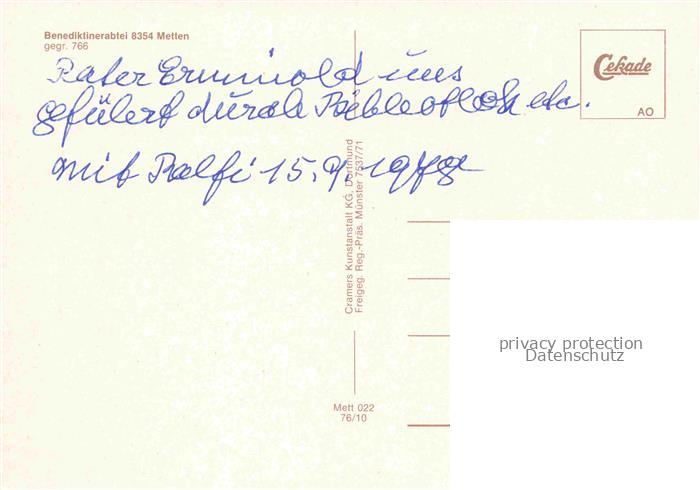 Benediktinerabtei 8354 Metten
gegr. 766
Pater Erminold uns
gefülert durch Biebleotlek etc.
mit Ralfi 15. 9. 1978
Cekade
AO
Cramers Kunstanstalt KG, Dortmund
Freigeg. Reg.-Präs. Münster 7537/71
privacy protection
Datenschutz
Mett 022
76/10